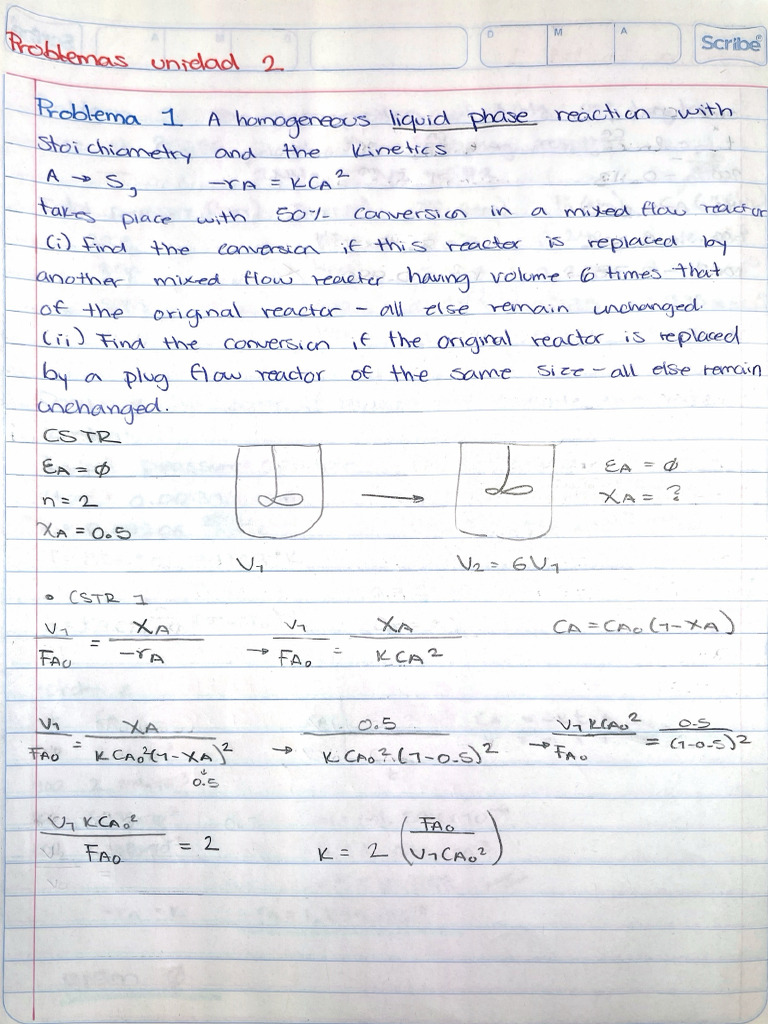 D M A
Scribe
Problemas unidad 2
Problema 1 A homogeneous liquid phase reaction with
Stoichiometry and the kinetics.
A → S, -rA = KCA²
takes place with 50% conversion in a mixed flow reactor
(i) Find the conversion if this reactor is replaced by
another mixed flow reacter having volume 6 times that
of the original reactor - all else remain unchanged.
(ii) Find the conversion if the original reactor is replaced
by a plug flow reactor of the same size - all else remain
unchanged.
CSTR
εA = ϕ
n = 2
XA = 0.5
V1
V2 = 6V1
εA = ϕ
XA = ?
• CSTR 1
V1/FA0 = XA/-rA → V1/FA0 = XA/KCA² CA = CA0(1-XA)
V1/FA0 = XA/KCA0²(1-XA)² → 0.5/KCA0².(1-0.5)² → V1 KCA0²/FA0 = 0.5/(1-0.5)²
0.5
V1 KCA0²/FA0 = 2 K = 2 (FA0/V1CA0²)